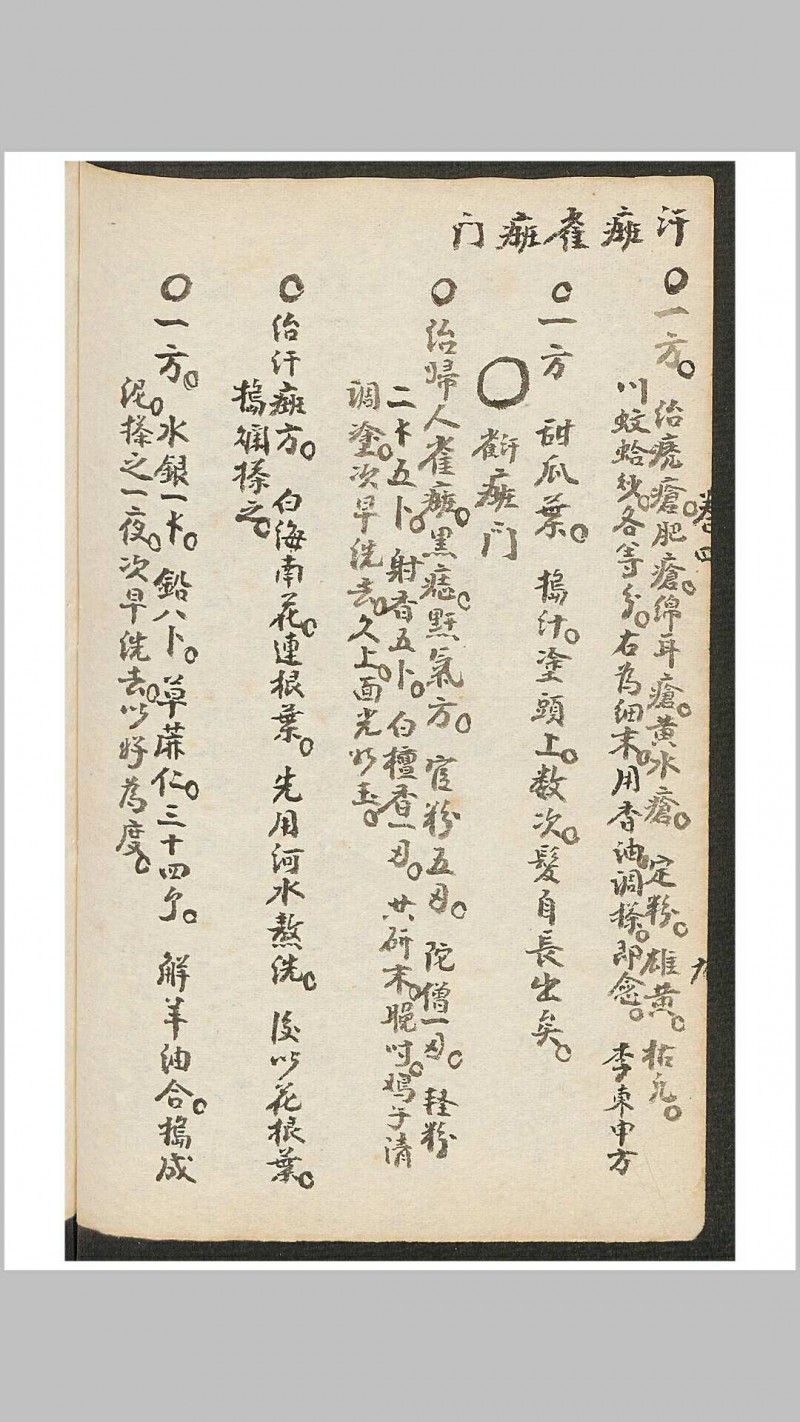 汗斑雀斑门
卷四
九
○一方。治疣瘡。肥瘡。绵耳瘡。黄水瘡。定粉。雄黄。枯凡。
川蚊蛤。各等分。右為细末。用香油调搽。即愈。李東申方
○一方 甜瓜葉。搗汁。塗頭上。数次。髮自長出矣。
○雀汗斑门
○治婦人雀斑。黑痣。黑氣方。官粉五刄。陀僧一刄。轻粉
二卜五卜。射香五卜。白檀香一刄。共研末。晚吋。鸡子清
调塗。次早洗去。久上。面光如玉。
○治汗斑方。白海南花。連根葉。先用河水熬洗。後以花根葉。
搗爛搽之。
○一方。水銀一卜。鉛八卜。草蔴仁。三十四个。解羊油合。搗成
泥。搽之一夜。次早洗去。以好為度。